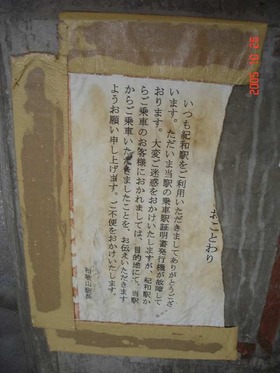 おことわり
いつも紀和駅をご利用いただきましてありがとうござ
います。ただいま当駅の乗車駅証明書発行機が故障して
おります。大変ご迷惑をおかけいたしますが、紀和駅か
らご乗車のお客様におかれましては、目的地にて、当駅
からご乗車いただきましたことを、お伝えいただきます
ようお願い申し上げます。ご不便をおかけいたします。
和歌山駅長
2005 10 25